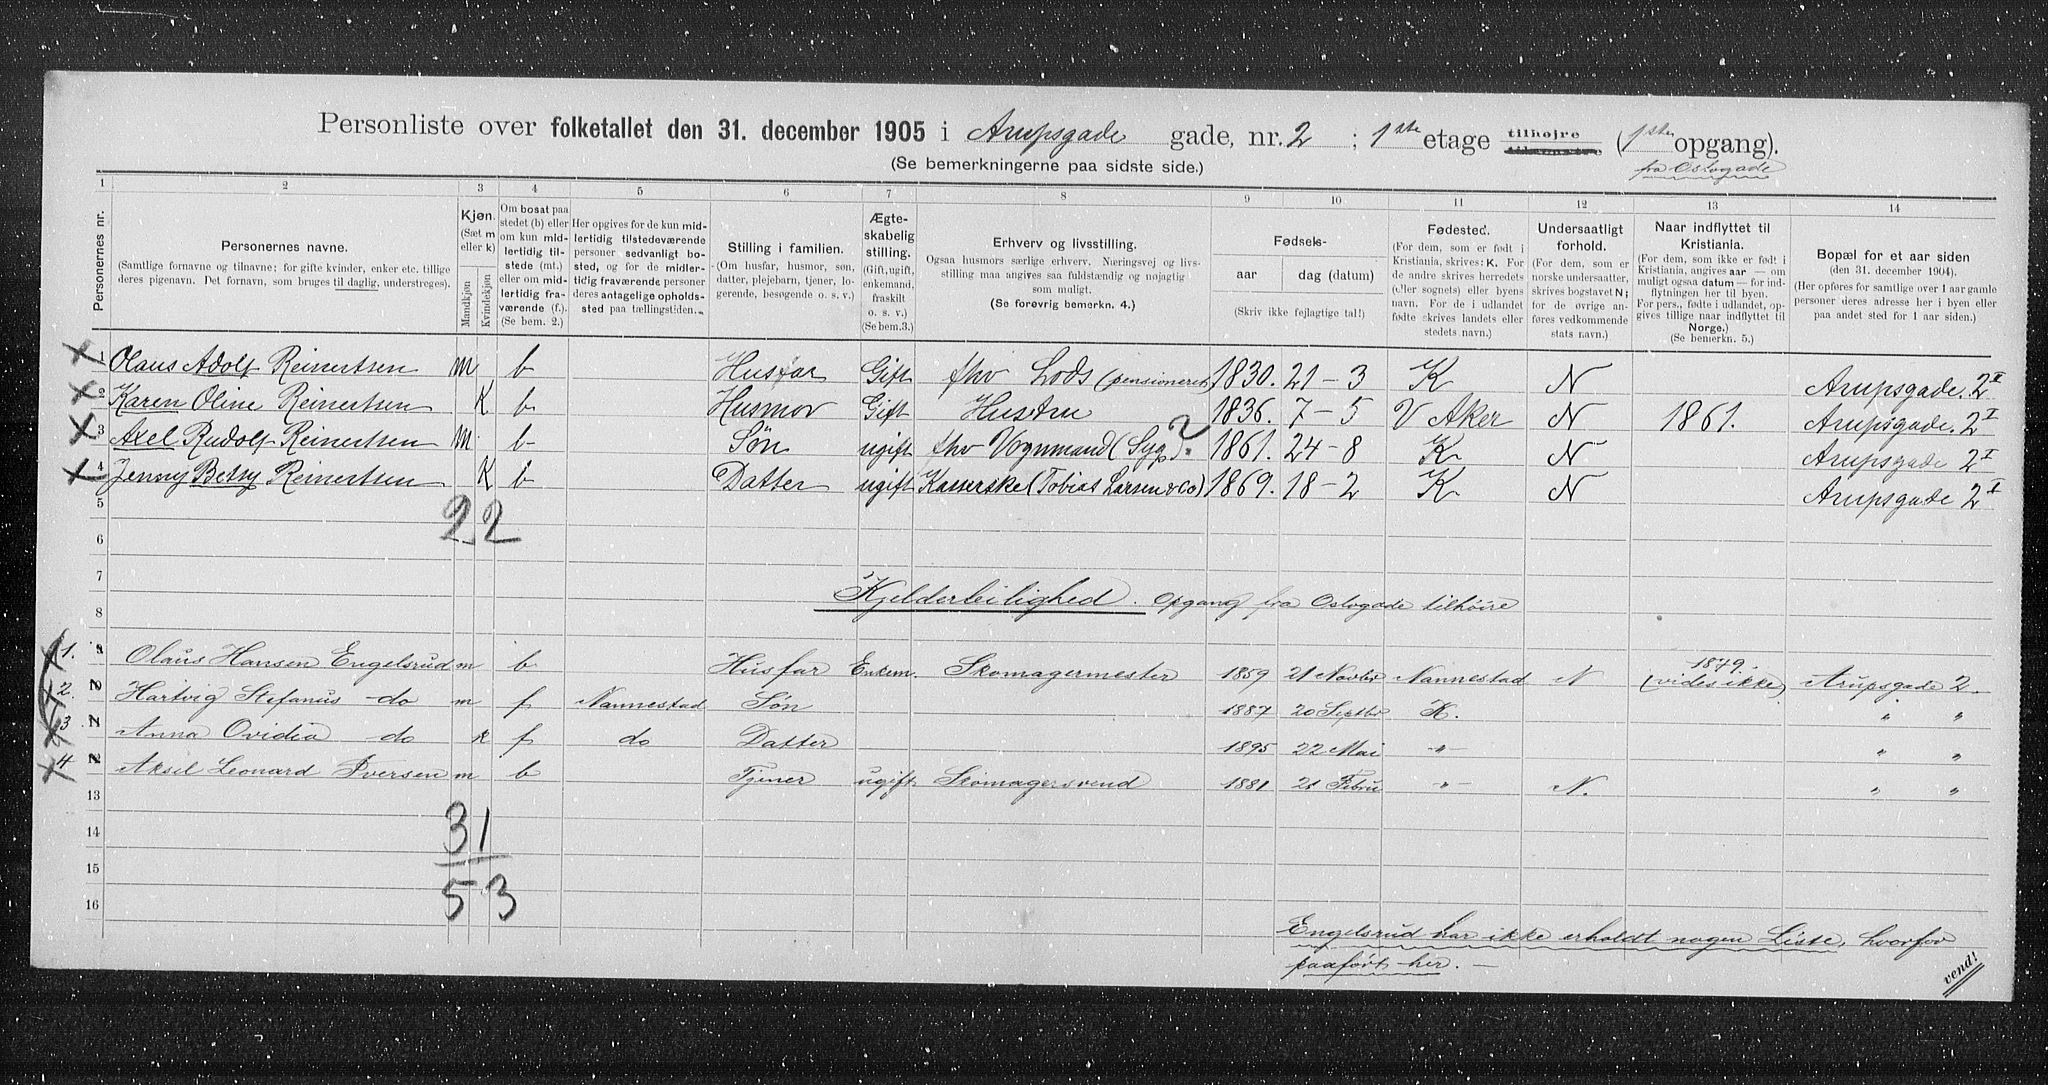 Personliste over folketallet den 31. december 1905 i Arupsgade gade, nr. 2 ; 1ste etage tilhøjre (1ste opgang).
(Se bemerkningerne paa sidste side.)
fra Oslogade
1 2 3 4 5 6 7 8 9 10 11 12 13 14
Personernes nr.
Personernes navne.
(Samtlige fornavne og tilnavne; for gifte kvinder, enker etc. tillige deres pigenavn. Det fornavn, som bruges til daglig, understreges).
Kjøn. (Sæt m eller k)
Mandkjøn Kvindekjøn
Om bosat paa stedet (b) eller om kun midlertidig tilstede (mt.) eller om midlertidig fraværende (f.). (Se bem. 2.)
Her opgives for de kun midlertidig tilstedeværende personer sedvanligt bosted, og for de midlertidig fraværende personer deres antagelige opholdssted paa tællingstiden.
Stilling i familien.
(Om husfar, husmor, søn, datter, plejebarn, tjener, logerende, besøgende o. s. v.)
Ægteskabelig stilling.
(Gift, ugift, enkemand, fraskilt o. s. v.) (Se bem. 3.)
Erhverv og livsstilling.
Ogsaa husmors særlige erhverv. Næringsvej og livsstilling maa angives saa fuldstændig og nøjagtig som muligt.
(Se forøvrig bemerkn. 4.)
Fødsels-
aar dag (datum)
(Skriv ikke fejlagtige tal!)
Fødested.
(For dem, som er født i Kristiania, skrives: K. For de andre skrives herredets (eller sognets) eller byens navn. For de i udlandet fødte skrives landets eller stedets navn.)
Undersaatligt forhold.
(For dem, som er norske undersaatter, skrives bogstavet N; for de øvrige anføres vedkommende stats navn.)
Naar indflyttet til Kristiania.
(For dem, som ikke er født i Kristiania, angives aar — om muligt ogsaa datum — for indflytningen her til byen. For pers., fødte i udlandet, opgives tillige naar indflyttet til Norge.)
(Se bemerkn. 5.)
Bopæl for et aar siden
(den 31. december 1904).
(Her opføres for samtlige over 1 aar gamle personer deres adresse her i byen eller paa andet sted for 1 aar siden.)
1 Olaus Adolf Reinertsen m b Husfar Gift fhv Lods (pensioneret) 1830. 21-3 K N Arupsgade. 2 I
2 Karen Oline Reinertsen K b Husmor Gift Hustru 1836. 7-5 V Aker N 1861. Arupsgade. 2 I
3 Axel Rudolf Reinertsen m b Søn ugift fhv Vognmand (Syg) ? 1861. 24-8 K N Arupsgade 2 I
4 Jenny Betsy Reinertsen K b Datter ugift Kasserske (Tobias Larsen & Co) 1869. 18-2 K N Arupsgade 2 I
5 2 2
6
7
Kjelderleilighed. Opgang fra Oslogade tilhøire
8
1. Olaus Hansen Engelsrud m b Husfar Enkem. Skomagermester 1859 21 Novbr Nannestad N 1879. (vides ikke) Arupsgade 2.
2. Hartvig Stefanus do m f Nannestad Søn 1887 20 Septbr K. " "
3 Anna Ovidia do k f do Datter 1895 22 Mai -"- " "
4 Aksel Leonard Iversen m b Tjener ugift Skomagersvend 1881 21 Febru -"- N. " "
13
14 3 1
15
16 5 3
Engelsrud har ikke erholdt nogen Liste, hvorfor
paaført her. —
vend!